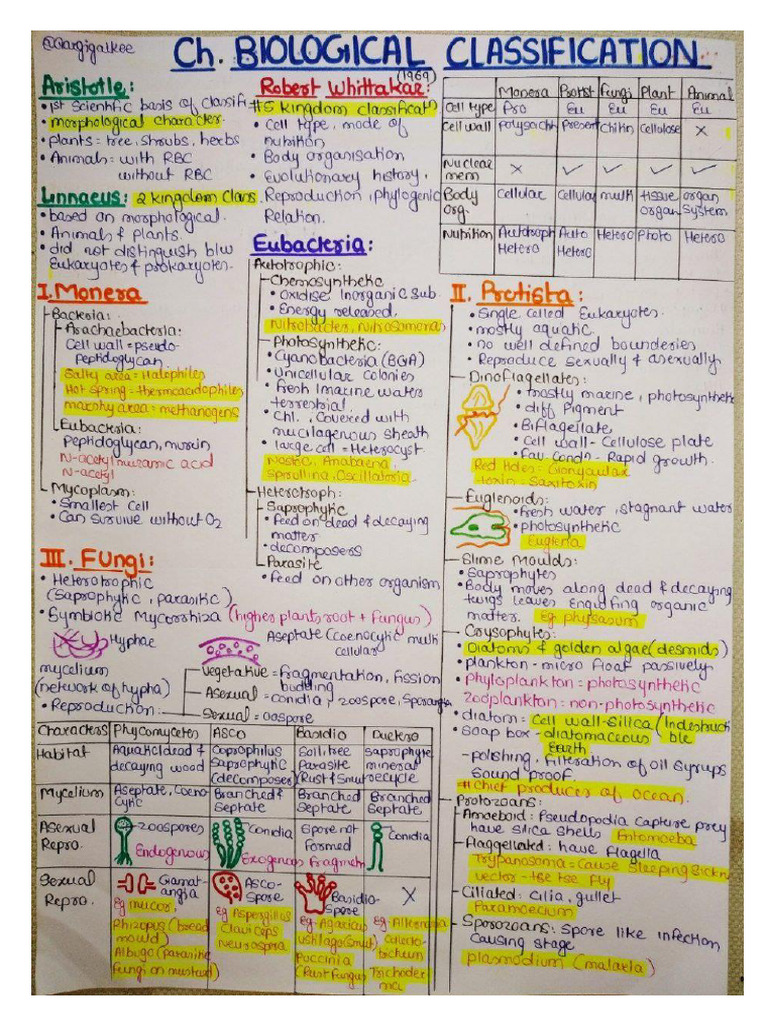 @Gargigalkee
Ch. BIOLOGICAL CLASSIFICATION
Aristotle:
• 1st scientific basis of classif.
• morphological character.
• plants = tree, shrubs, herbs
• Animals: with RBC
without RBC
Linnaeus: 2 kingdom class.
• based on morphological.
• Animals & plants.
• did not distinguish b/w
Eukaryotes & prokaryotes.
Robert Whittakar: (1969)
#5 kingdom classificatn
• Cell type, mode of
nutrition
• Body organisation
• Evolutionary history,
Reproduction, phylogenic
Relation.
Monera Protist Fungi Plant Animal
Cell type Pro Eu Eu Eu Eu
Cell wall polysacch Present Chitin Cellulose X
Nuclear mem X ✓ ✓ ✓ ✓
Body Org. Cellular Cellular multi tissue organ organ system
Nutrition Autotroph Hetero Auto Hetero Hetero Photo Hetero
I. Monera
Bacteria:
Arachaebacteria:
Cell wall = pseudo-
peptidoglycan
Salty area = Halophiles
Hot spring = thermoacidophiles
marshy area = methanogens
Eubacteria:
Peptidoglycan, murein
N-acetyl muramic acid
N-acetyl
Mycoplasm:
• Smallest cell
• Can survive without O2
Eubacteria:
Autotrophic:
Chemosynthetic
• Oxidise Inorganic Sub.
• Energy released,
Nitrobacter, Nitrosomona
Photosynthetic:
• Cyanobacteria (BGA)
• Unicellular colonies
• fresh/marine water
terrestrial.
• Chl., Covered with
mucilagenous sheath
• large cell = Heterocyst.
Nostoc, Anabaena,
Spirulina, Oscillatoria
Heterotroph:
Saprophytic
• feed on dead & decaying
matter
• decomposers
Parasite
• feed on other organism
II. Protista:
• Single celled Eukaryotes.
• mostly aquatic.
• no well defined bounderies
• Reproduce sexually & asexually
Dinoflagellates:
• mostly marine, photosynthetic
• diff Pigment
• Biflagellate,
• Cell wall - Cellulose plate
• Fav condn - Rapid growth.
Red tides = Gonyaulax
toxin = Saxitoxin
Euglenoids:
• fresh water, stagnant water
• photosynthetic
Euglena
Slime Moulds:
• Saprophytes
• Body moves along dead & decaying
twigs leaves Engulfing organic
matter. Eg. physarum
Crysophytes:
• Diatoms & golden algae (desmids)
• plankton - micro float passively
• Phytoplankton = photosynthetic
Zooplankton = non-photosynthetic
• diatom: Cell wall - Silica (Indestructible
• Soap box - diatomaceous
Earth.
- polishing, filteration of oil syrups
Sound proof.
# chief producer of ocean.
Protozoans:
Amoeboid: Pseudopodia capture prey
have silica shells Entomoeba
Flaggellated: have flagella
Trypanosoma = cause Sleeping Sickn
vector - tse tse fly
Ciliated: Cilia, gullet
Paramoecium
Sporozoans: Spore like infection
Causing stage
plasmodium (malaria)
III. Fungi:
• Heterotrophic
(saprophytic, parasitic)
• Symbiotic Mycorrhiza (higher plants root + Fungus)
Hyphae
Aseptate (Coenocytic multi
cellular)
mycelium
(network of hypha)
• Reproduction:
Vegetative = fragmentation, fission
budding
Asexual = conidia, zoospore, sporangia
Sexual = oospore
Characters Phycomycetes ASCO Basidio Duetero
Habitat Aquatic/dead & decaying wood Coprophilus Saprophytic (decomposer) Soil, tree Parasite (Rust & Smut) saprophyte mineral recycle
Mycelium Aseptate, Coenocytic Branched & Septate Branched Septate Branched Septate
Asexual Repro. Zoospores Endogenous Conidia Exogenous Spore not Formed Fragmentn Conidia
Sexual Repro. Giamatangia ASCO-Spore Basidio-Spore X
Eg mucor, Rhizopus (bread mould) Albugo (parasitic fungi on mustard)
Eg Aspergillus Claviceps Neurospra
Eg- Agaricus ushilago (smut) Puccinia (Rust fungus)
Eg- Alternaria Colectotrichum Trichoderma